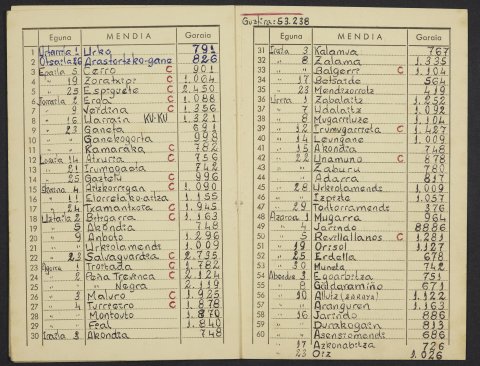 Eguna MENDIA Garaia
1 Urtarrila 1 Urko 791
2 Otsaila 26 Arastortzko-gane 826
3 Epaila 5 Cerro C 901
4 " Zoratxior C 1.004
5 " 25 Espiguete C 2.450
6 Jorraila 2 Erga C 1.088
7 " 9 Verdina C 1.356
8 " 16 Uarrain KU-KU 1.321
9 " 23 Ganeta 691
10 " Ganekogorta 998
11 " Kamaraka C 782
12 14 Atxuria C 756
13 " 21 Irumugaeta 742
14 " 25 Gaztelu C 996
15 4 C 1.090
16 " 11 1.155
17 " 24 Txamantxoia C 1.945
18 Uztaila 2 Bitigarra C 1.163
19 " 5 Akondia 748
20 " 9 Anboto 1.296
21 " Urkiolamendi 1.009
22 " 23 Salvaguardia C 2.735
23 Agorra 1 Troitada C 1.782
24 " 2 Peña Trevinca C 2.124
25 " " Negra 2.119
26 " 3 Maluro C 1.925
27 " 4 Turrieiro C 1.878
28 " Montouto 1.870
29 " Feal 1.840
30 Iraila 3 Akondia 748
Guztira: 53.238
Eguna MENDIA Garaia
31 Iraila 3 Kalamua 767
32 " 8 Zalama 1.335
33 " Balgerri C 1.104
34 " 17 Beloaide 564
35 " 23 Mendizorrotz 419
36 Urria 1 Zabalaitz 1.252
37 " 7 Udalaitz 1.092
38 " 8 Mugarriluze 1.104
39 " 12 Irumugarrieta C 1.427
40 " 14 Leungane 1.009
41 " 15 Akondia 748
42 " 22 Unamuno C 878
43 " Zaburu 780
44 " Adarra 817
45 " 28 Urkiolamendi 1.009
46 " Izpizte 1.057
47 " 29 Tontorramendi 376
48 Azaroa 1 Mugarra 964
49 " 4 Jarindo 8886
50 " 5 Revillallanos C 1.281
51 " 19 Orisol 1.127
52 " 25 Erdella 678
53 " 30 Muneta 742
54 Abendua 3 Egoarbitza 751
55 " 8 Galdaramiño 671
56 " 10 Alluitz 1.122
57 " Aranguren 1.163
58 " 16 Jarindo 886
59 " Durakogain 813
60 " Asensiomendi 686
" 17 Azkonabitza 726
" 23 Oiz 1.026